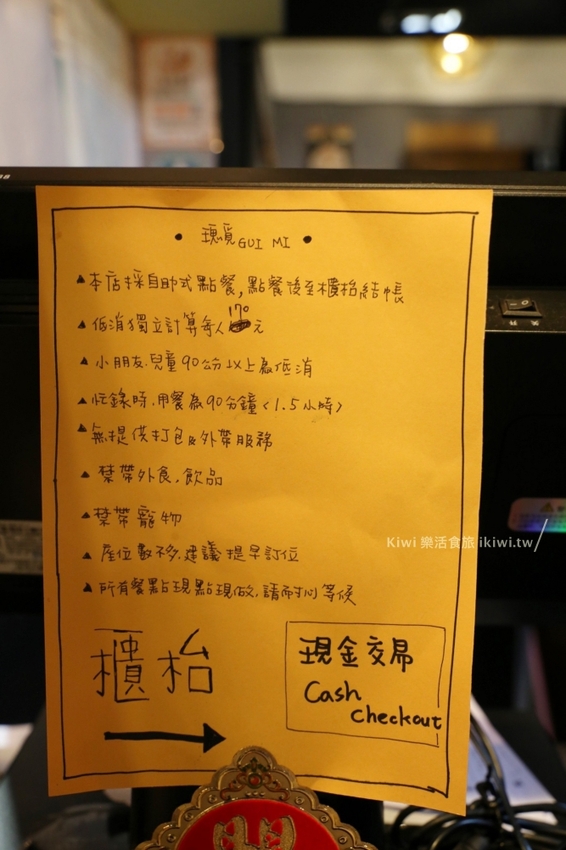 • 瑰覓 GUI MI •
▲本店採自助式點餐,點餐後至櫃枱結帳
▲低消獨立計算每人170元
▲小朋友.兒童90公分以上為低消
▲忙錄時.用餐為90分鐘〈1.5小時〉
▲無提供打包&外帶服務
▲禁帶外食.飲品
▲禁帶寵物
▲座位數不多.建議提早訂位
▲所有餐點現點現做.請耐心等候
櫃枱
現金交易
Cash
checkout
Kiwi 樂活食旅 ikiwi.tw